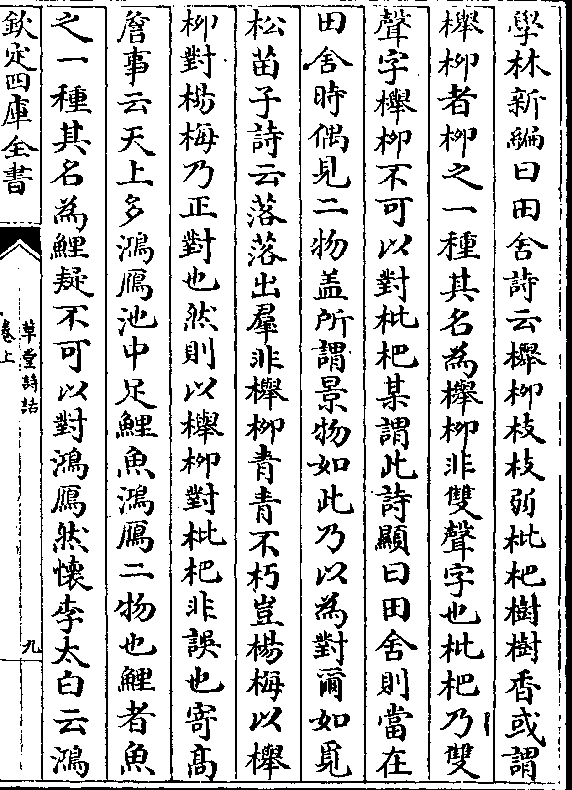 學林新編曰田舍詩云櫸柳枝枝弱枇杷樹樹香或謂
櫸柳者柳之一種其名為櫸柳非雙聲字也枇杷乃雙
聲字櫸柳不可以對枇杷某謂此詩顯曰田舍則當在
田舍時偶見二物盖所謂景物如此乃以為對爾如覓
松苗子詩云落落出羣非櫸柳青青不朽豈楊梅以櫸
柳對楊梅乃正對也然則以櫸柳對枇杷非誤也寄高
詹事云天上多鴻鴈池中足鯉魚鴻鴈二物也鯉者魚
之一種其名為鯉疑不可以對鴻鴈然懷李太白云鴻
欽定四庫全書
草堂詩話
卷上
九